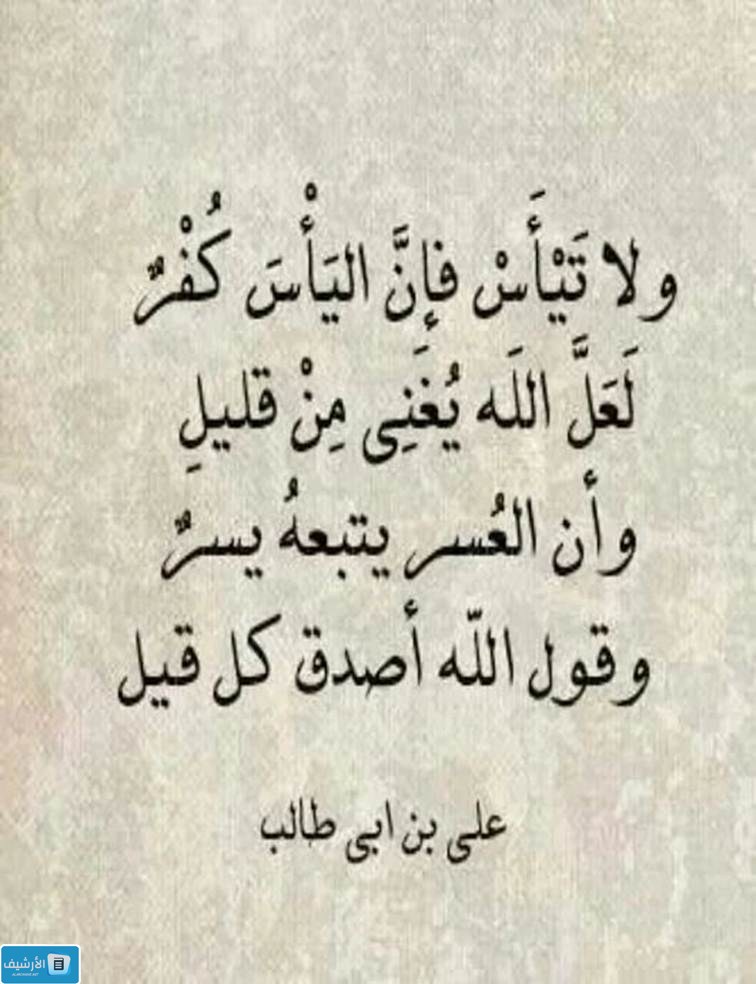 ولا تَيْأَسْ فإنَّ اليَأْسَ كُفْرٌ
لَعَلَّ اللَه يُغَنِى مِنْ قليلِ
وأن العُسر يتبعهُ يسرٌ
وقول اللّه أصدق كل قيل
على بن ابى طالب
الأرشيف